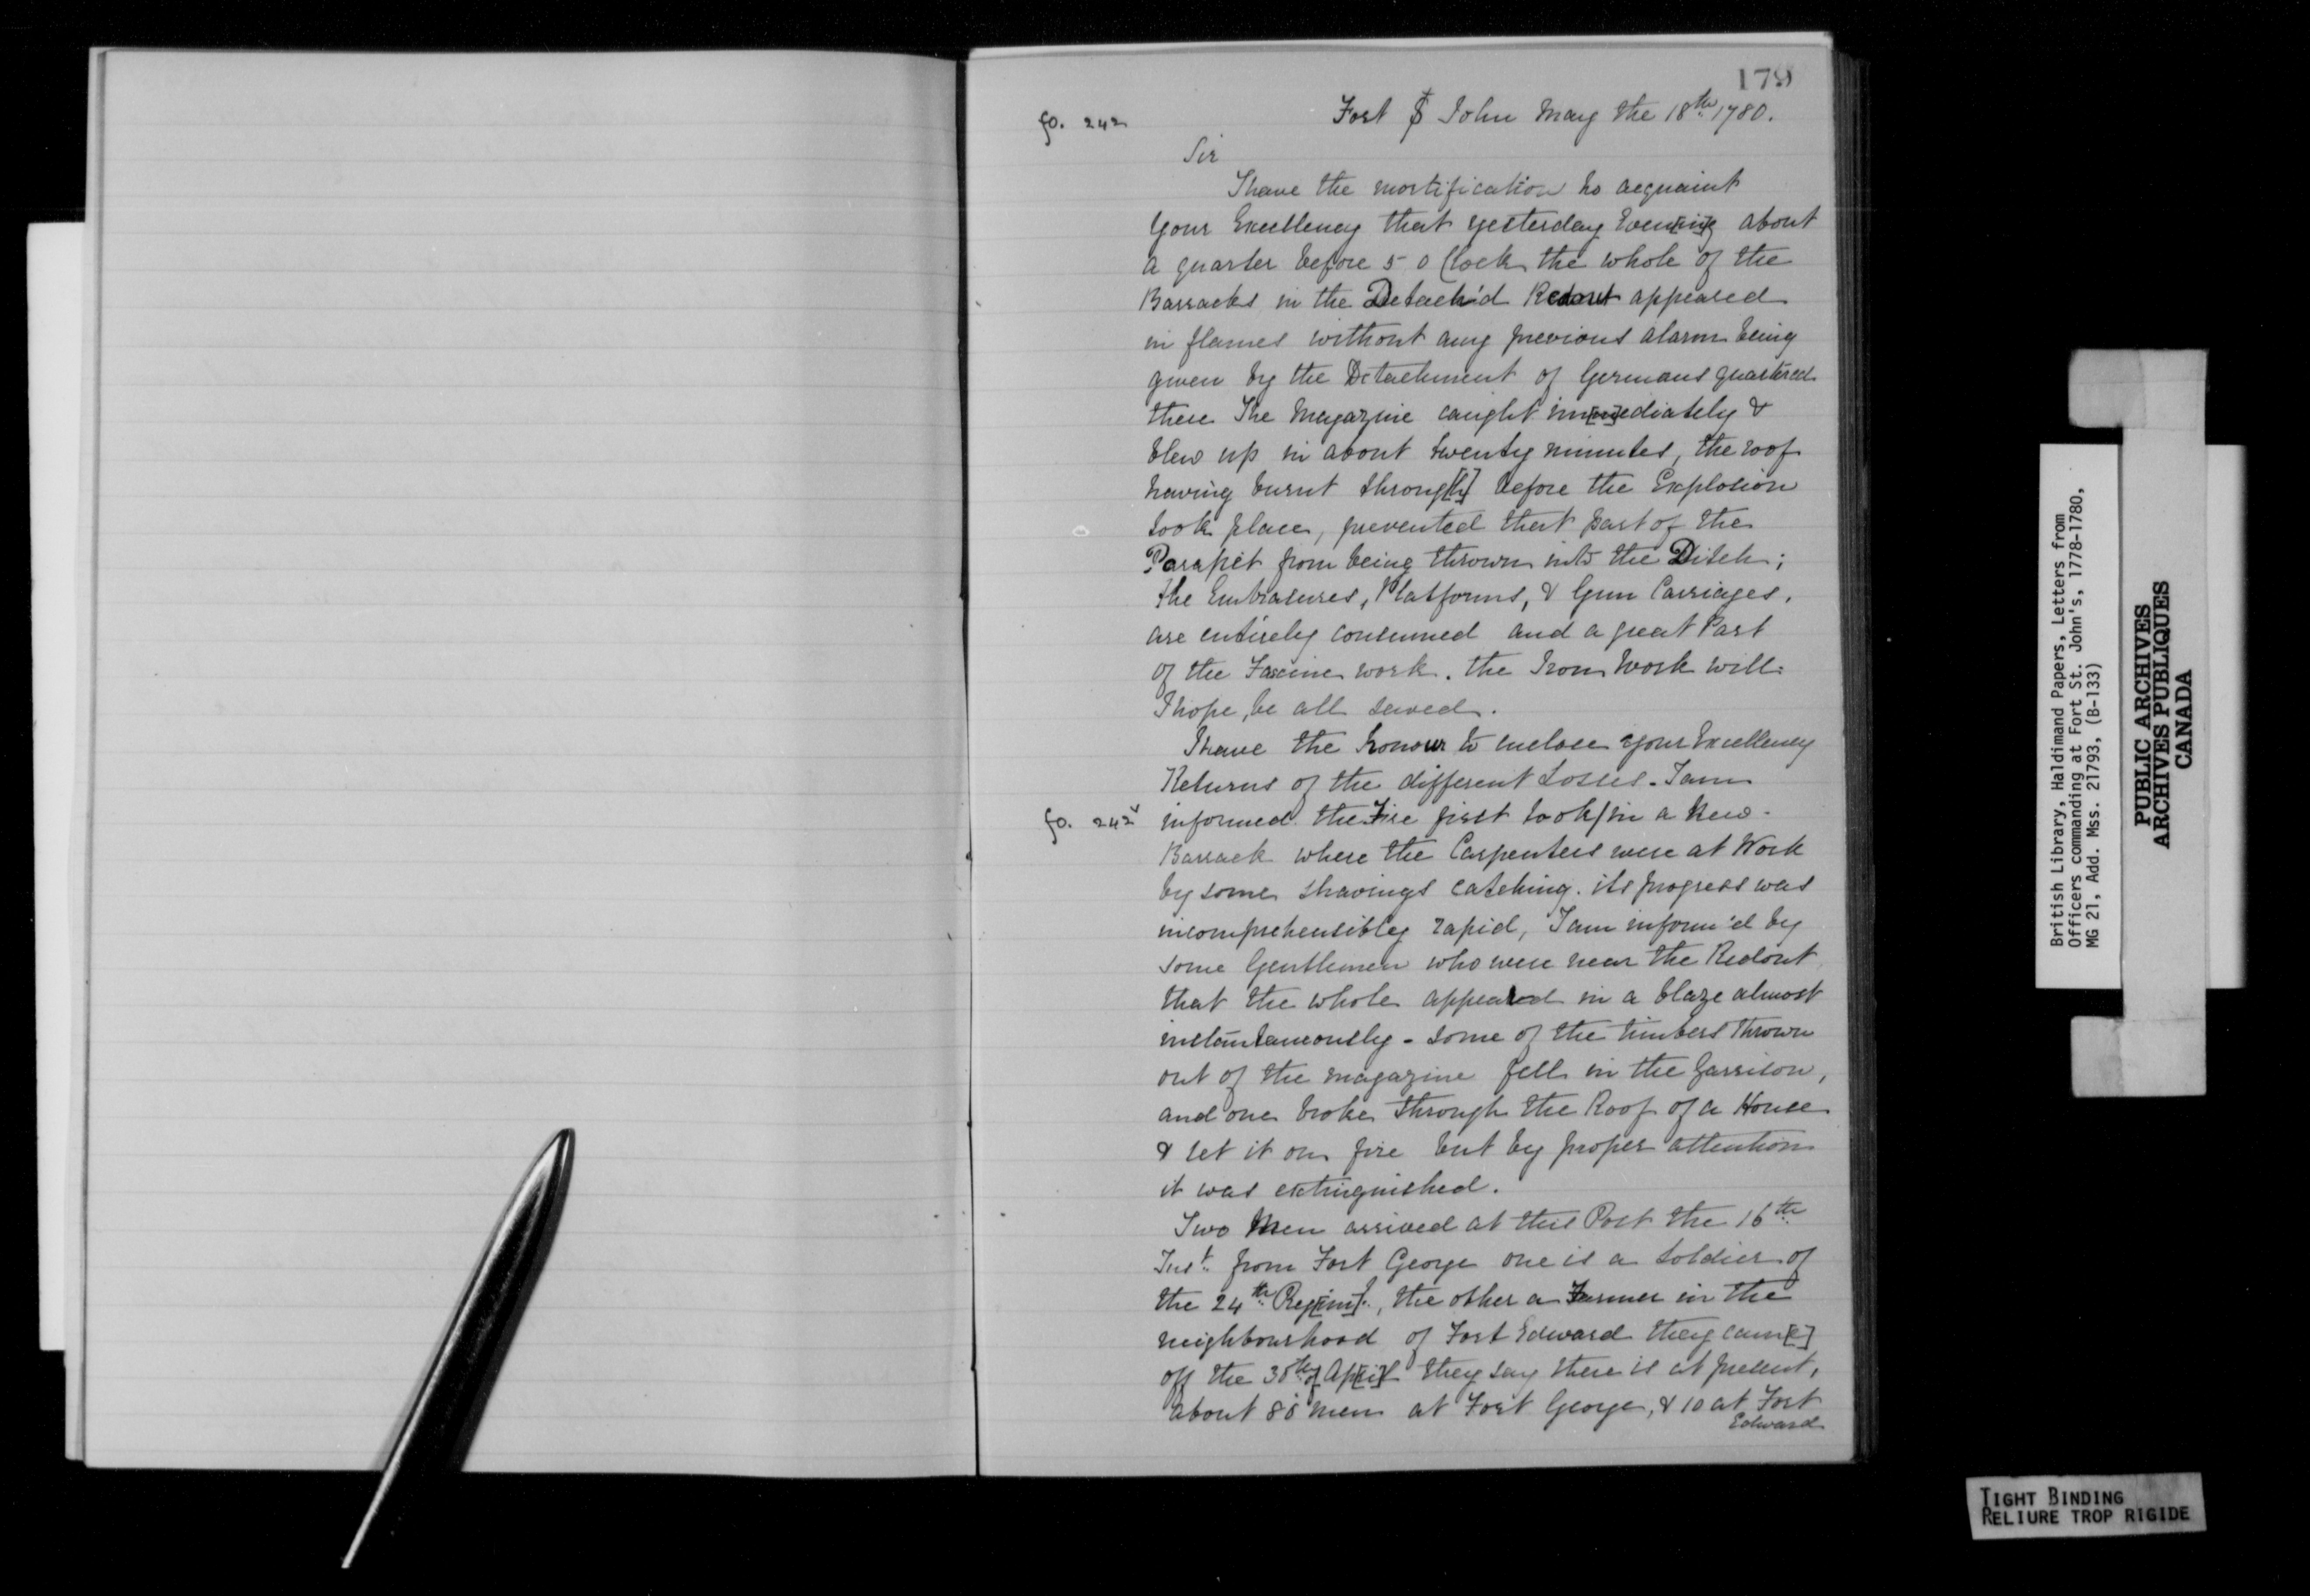 179
fo. 242
Fort St John May the 18th 1780.
Sir
I have the mortification to acquaint
your Excellency that yesterday Even[in]g about
a quarter before 5 o Clock the whole of the
Barracks in the Detach'd Redout appeared
in flames without any previous alarm being
given by the Detachment of Germans quartered
there The Magazine caught im[m]ediately &
blew up in about twenty minutes, the roof
having burnt throug[h] before the Explosion
took place, prevented that part of the
Parapet from being thrown into the Ditch;
the Embrasures, Platforms, & Gun Carriages,
are entirely consumed and a great Part
of the Fascine work. the Iron Work will
I hope, be all saved.
I have the honour to enclose your Excellency
Returns of the different Losses. I am
fo. 242v
informed the Fire first took/in a New
Barrack where the Carpenters were at Work
by some shavings catching. its progress was
incomprehensibly rapid, I am inform'd by
some Gentlemen who were near the Redout
that the whole appeared in a blaze almost
instantaneously - some of the timbers thrown
out of the magazine fell in the Garrison,
and one broke through the Roof of a House
& set it on fire but by proper attention
it was extinguished.
Two Men arrived at this Post the 16th
Inst from Fort George one is a Soldier of
the 24th Reg[imen]t, the other a Farmer in the
neighbourhood of Fort Edward they cam[e]
off the 30th of Ap[ri]l they say there is at present,
about 80 men at Fort George, & 10 at Fort
Edward
British Library, Haldimand Papers, Letters from
Officers commanding at Fort St. John's, 1778-1780,
MG 21, Add. Mss. 21793, (B-133)
PUBLIC ARCHIVES
ARCHIVES PUBLIQUES
CANADA
TIGHT BINDING
RELIURE TROP RIGIDE